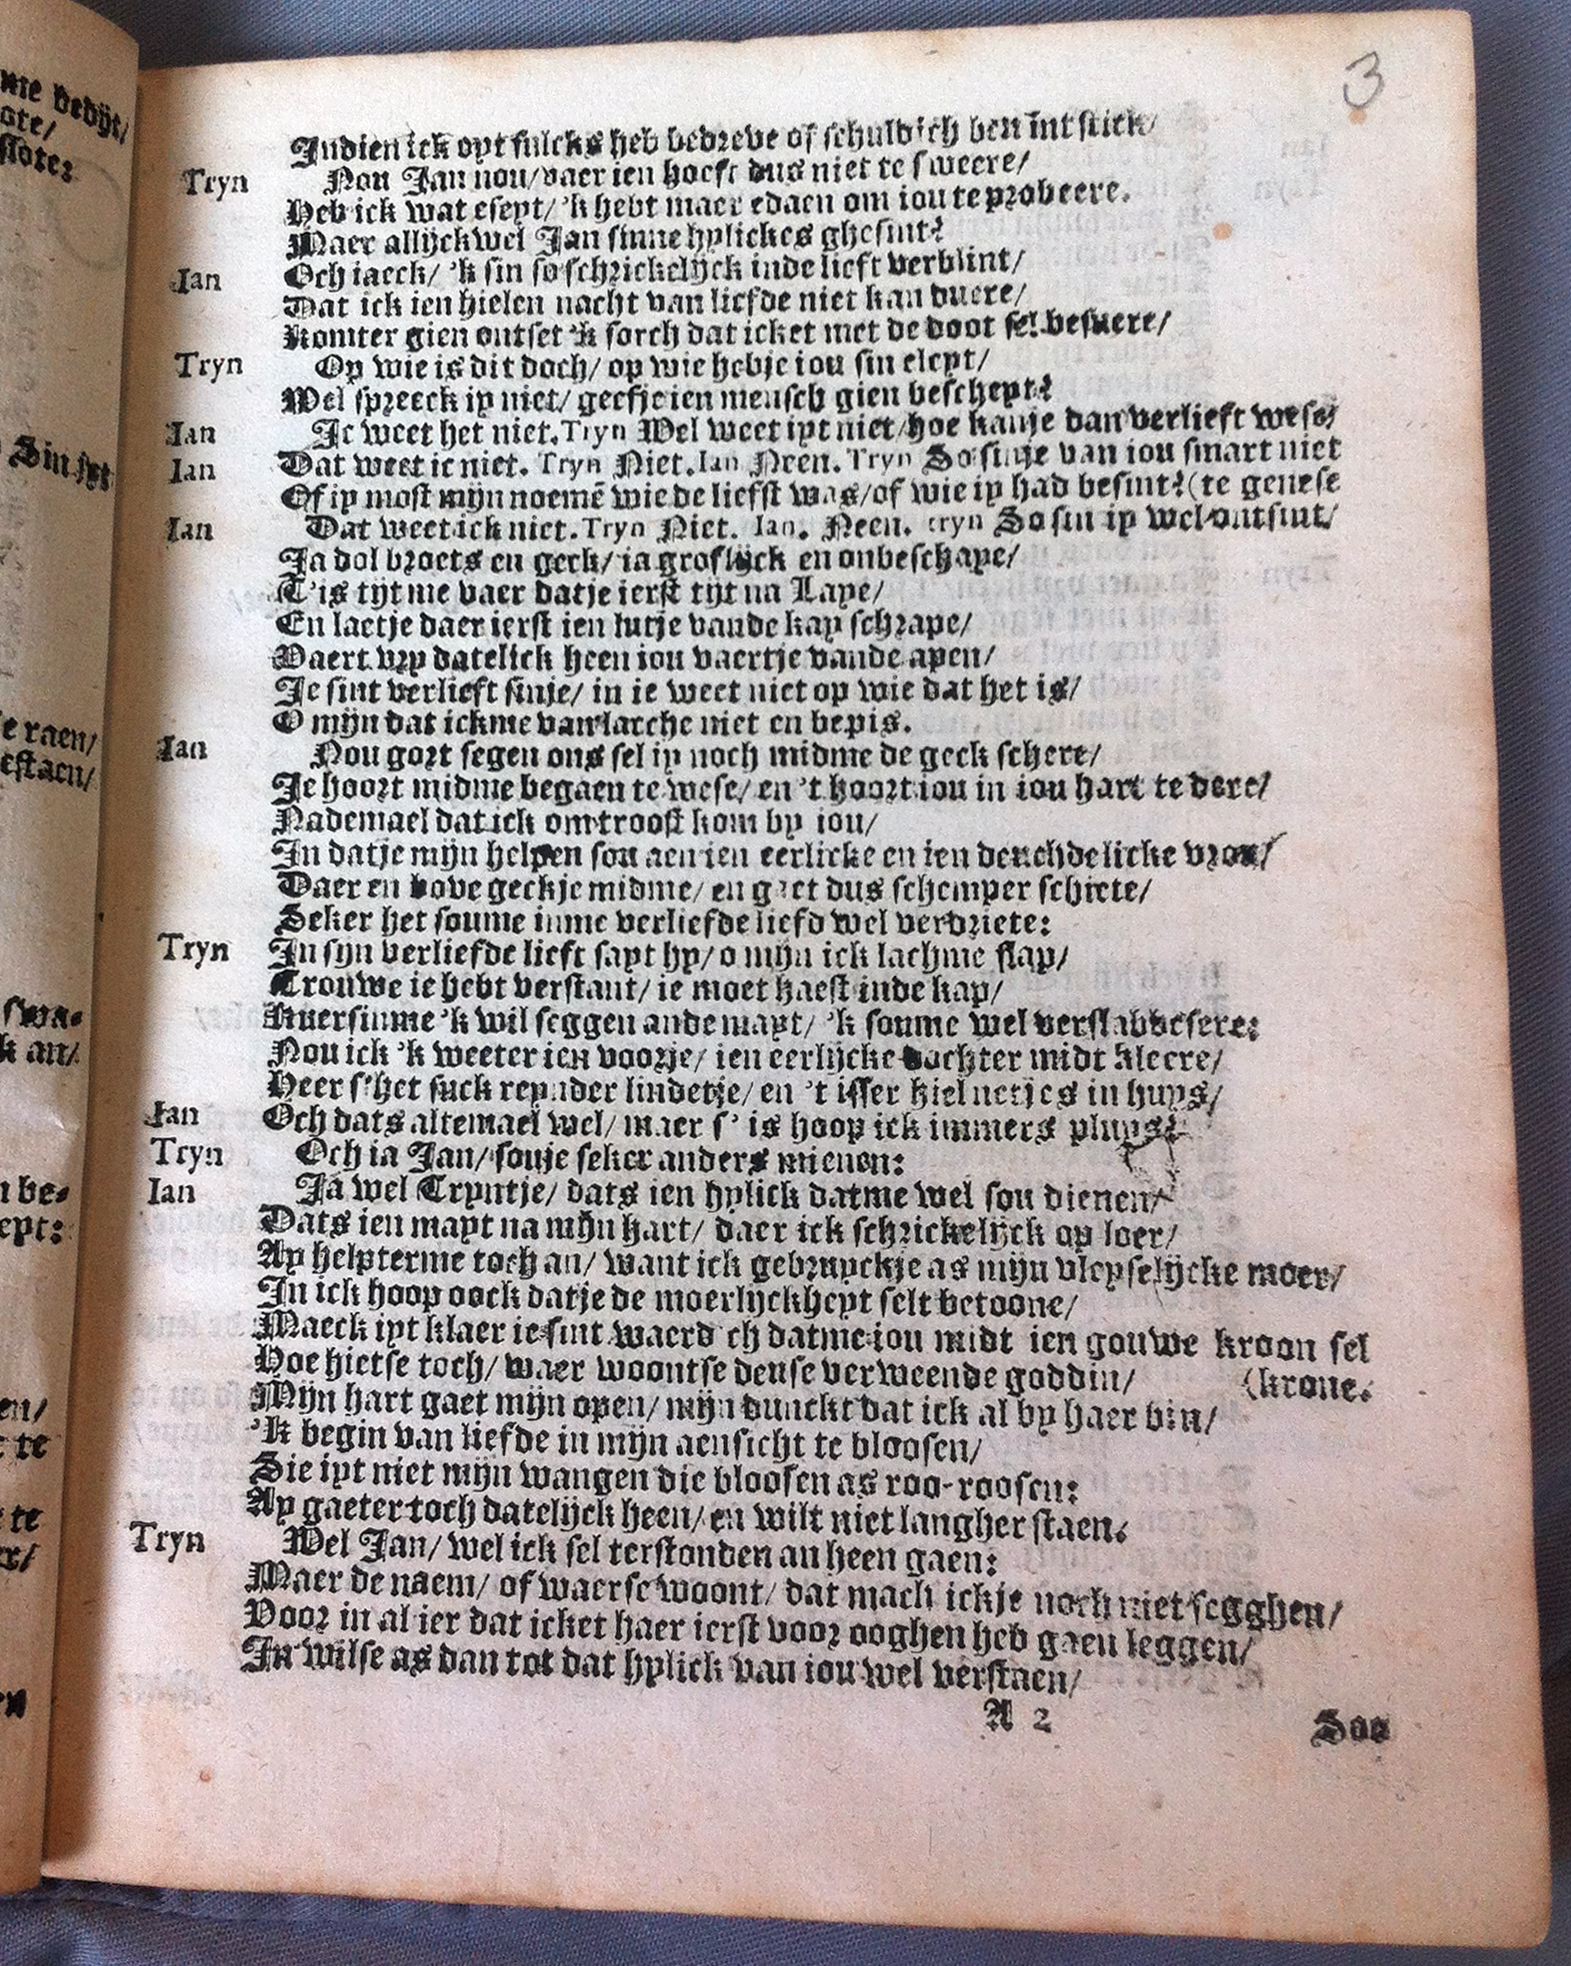 3
Indien ick oyt sulcks heb bedreve of schuldich ben int stick/
Tryn Nou Jan nou/vaer ien hoeft dus niet te sweere/
Heb ick wat eseyt/ 'k hebt maer edaen om iou te probeere.
Maer allijckwel Jan sinne hylickes ghesint?
Jan Och iaeck/ 'k sin so schrickelijck inde lieft verblint/
Dat ick ien hielen nacht van liefde niet kan duere/
Komter gien ontset 'k sorch dat icket met de doot sel besuere/
Tryn Op wie is dit doch/ op wie hebje iou sin eleyt/
Wel spreeck iy niet/ geefje ien mensch gien bescheyt?
Jan Je weet het niet. Tryn Wel weet iyt niet/hoe kanje dan verlieft wese/
Jan Dat weet ic niet. Tryn Niet. Jan Neen. Tryn So sinje van iou smart niet
Of iy most mijn noemē wie de liefst was/of wie iy had besint?(te genese
Jan Dat weet ick niet. Tryn Niet. Jan. Neen. tryn So sin iy wel ontsint/
Ja dol broets en geck/ ia groflijck en onbeschape/
T'is tijt me vaer datje ierst tijt na Lape/
En laetje daer ierst ien lutje vande kay schrape/
Vaert vry datelick heen iou vaertje vande apen/
Je sint verlieft sinje/ in ie weet niet op wie dat het is/
O mijn dat ickme van lacche niet en bepis.
Jan Nou gort segen ons sel iy noch midme de geck schere/
Je hoort midme begaen te wese/ en 't hoort iou in iou hart te dere/
Nademael dat ick om troost kom by iou/
In datje mijn helpen sou aen ien eerlicke en ien deuchdelicke vrou/
Daer en bove geckje midme/ en gaet dus schemper schiete/
Seker het soume inme verliefde liefd wel verdriete:
Tryn In sijn verliefde lieft sayt hy/ o mijn ick lachme slap/
Trouwe ie hebt verstant/ ie moet haest inde kap/
Kuersinme 'k wil seggen ande mayt/ 'k soume wel verslabbesere:
Nou ick 'k weeter ien voorje/ ien eerlijcke dochter midt kleere/
Heer s'het suck reynder lindetje/ en 't isser hiel netjes in huys/
Jan Och dats altemael wel/ maer s' is hoop ick immers pluys?
Tryn Och ia Jan/ souje seker anders mienen:
Jan Ja wel Tryntje/ dats ien hylick datme wel sou dienen/
Dats ien mayt na mijn hart/ daer ick schrickelijck op loer/
Ay helpterme toch an/ want ick gebruyckje as mijn vleyselijcke moer/
In ick hoop oock datje de moerlijckheyt selt betoone/
Maeck iyt klaer ie sint waerd ch datme iou midt ien gouwe kroon sel
Hoe hietse toch/ waer woontse deuse verweende goddin/ (krone.
Mijn hart gaet mijn open/ mijn dunckt dat ick al by haer bin/
'K begin van liefde in mijn aensicht te bloosen/
Sie iyt niet mijn wangen die bloosen as roo-roosen:
Ay gaeter toch datelijck heen/ en wilt niet langher staen.
Tryn Wel Jan/ wel ick sel terstonden an heen gaen:
Maer de naem/ of waerse woont/ dat mach ickje noch niet segghen/
Voor in al ier dat icket haer ierst voor ooghen heb gaen leggen/
In wilse as dan tot dat hylick van iou wel verstaen/
A 2 Soo